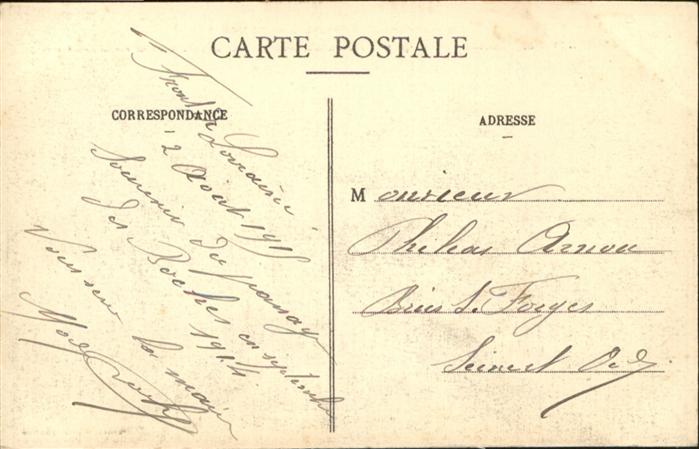 CARTE POSTALE
CORRESPONDANCE
Front de Lorraine
2 Août 1915
Souvenir du passage
des Boches en septembre
1914
Vous serre la main
ADRESSE
Monsieur
Philéas Arnou
Briis s. Forges
Seine et Oise